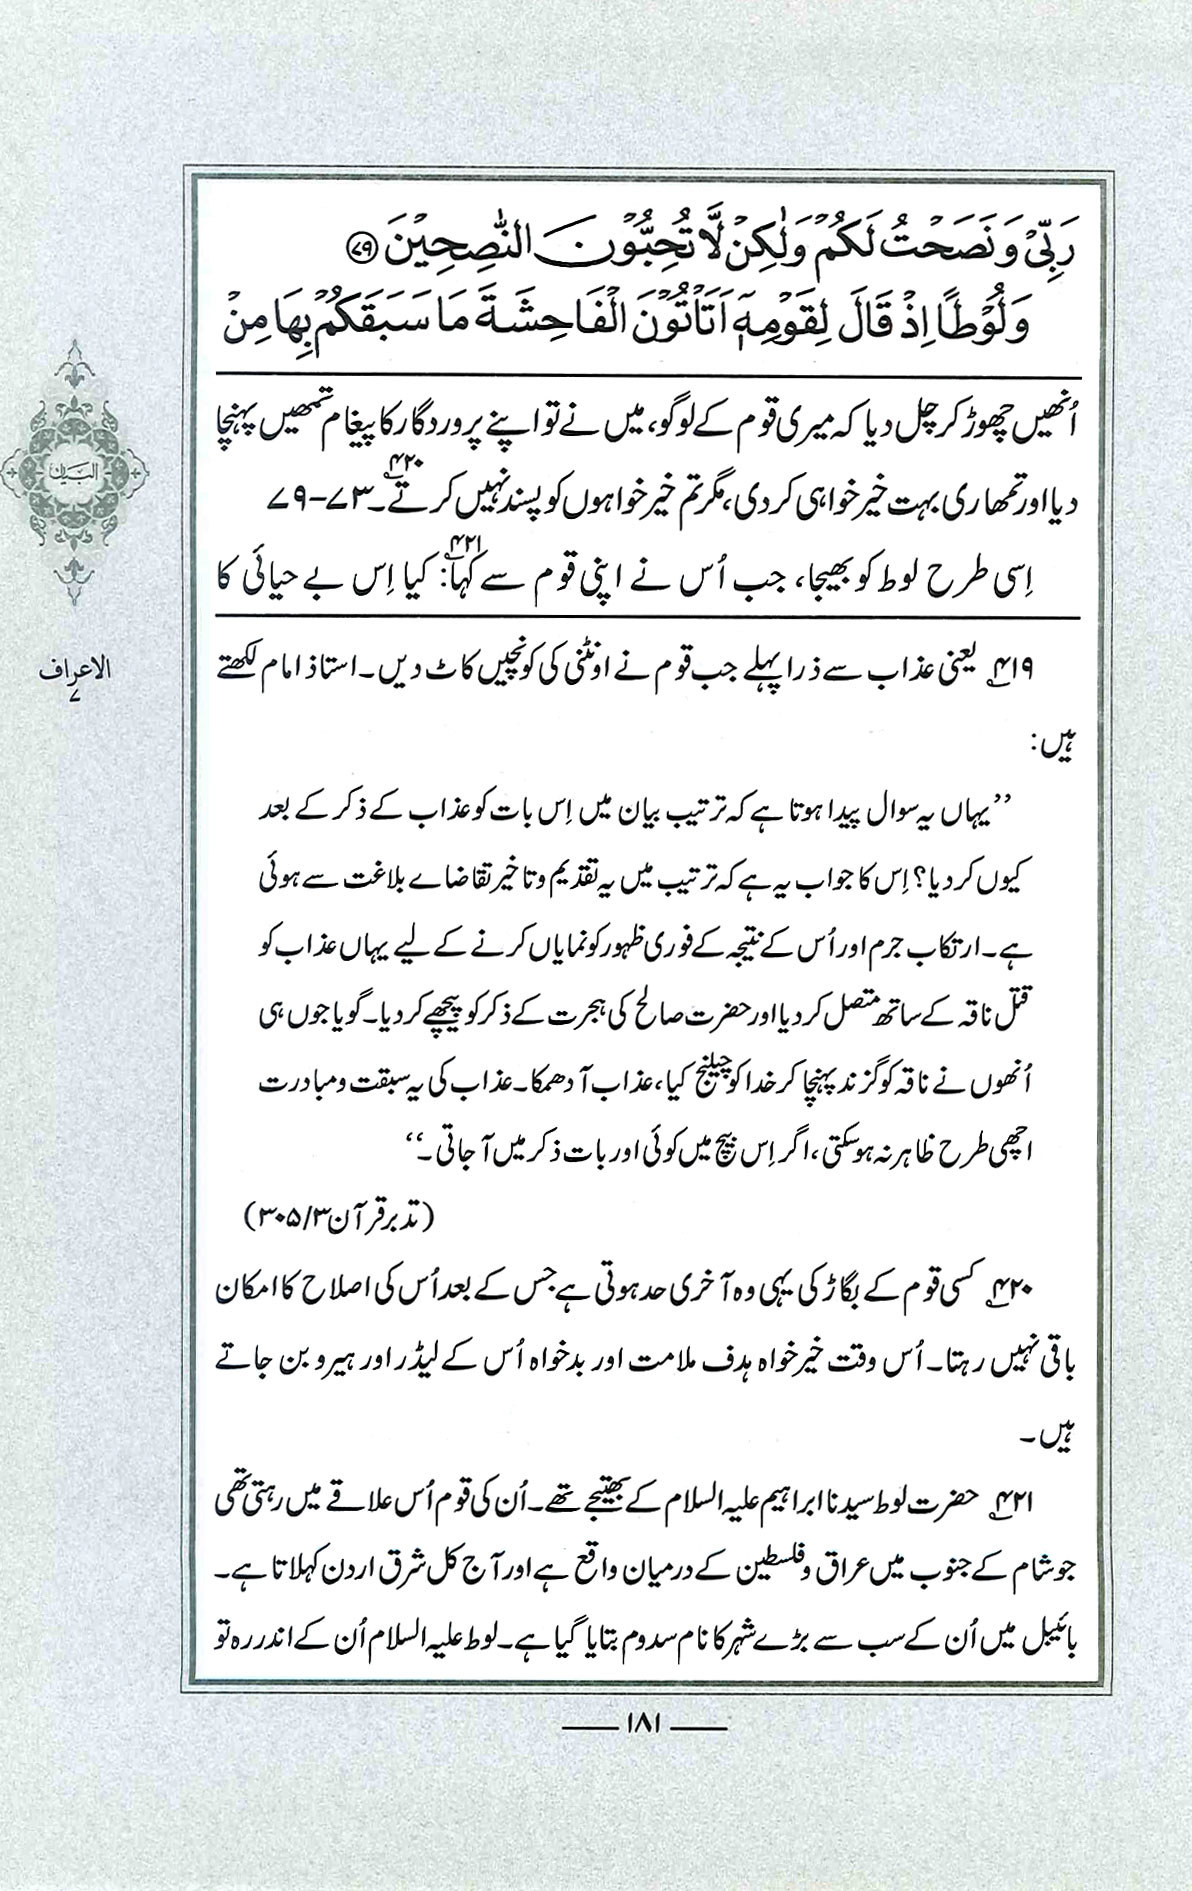 رَبِّیۡ وَنَصَحۡتُ لَکُمۡ وَلٰکِنۡ لَّا تُحِبُّوۡنَ النّٰصِحِیۡنَ ﴿۷۹﴾
وَلُوۡطًا اِذۡ قَالَ لِقَوۡمِهٖۤ اَتَاۡتُوۡنَ الۡفَاحِشَةَ مَا سَبَقَکُمۡ بِهَا مِنۡ
اُنھیں چھوڑ کر چل دیا کہ میری قوم کے لوگو، میں نے تو اپنے پروردگار کا پیغام تمھیں پہنچا
دیا اور تمھاری بہت خیر خواہی کر دی، مگر تم خیر خواہوں کو پسند نہیں کرتے۴۲۰۔ ۷۳-۷۹
اِسی طرح لوط کو بھیجا، جب اُس نے اپنی قوم سے کہا۴۲۱: کیا اِس بے حیائی کا
البیان
الاعراف
۷
۴۱۹ یعنی عذاب سے ذرا پہلے جب قوم نے اونٹنی کی کونچیں کاٹ دیں۔ استاذ امام لکھتے
ہیں:
’’یہاں یہ سوال پیدا ہوتا ہے کہ ترتیب بیان میں اِس بات کو عذاب کے ذکر کے بعد
کیوں کر دیا؟ اِس کا جواب یہ ہے کہ ترتیب میں یہ تقدیم و تاخیر تقاضاے بلاغت سے ہوئی
ہے۔ ارتکاب جرم اور اُس کے نتیجہ کے فوری ظہور کو نمایاں کرنے کے لیے یہاں عذاب کو
قتل ناقہ کے ساتھ متصل کر دیا اور حضرت صالح کی ہجرت کے ذکر کو پیچھے کر دیا۔ گویا جوں ہی
اُنھوں نے ناقہ کو گزند پہنچا کر خدا کو چیلنج کیا، عذاب آ دھمکا۔ عذاب کی یہ سبقت و مبادرت
اچھی طرح ظاہر نہ ہو سکتی، اگر اِس بیچ میں کوئی اور بات ذکر میں آ جاتی۔‘‘
(تدبر قرآن ۳/۳۰۵)
۴۲۰ کسی قوم کے بگاڑ کی یہی وہ آخری حد ہوتی ہے جس کے بعد اُس کی اصلاح کا امکان
باقی نہیں رہتا۔ اُس وقت خیر خواہ ہدف ملامت اور بدخواہ اُس کے لیڈر اور ہیرو بن جاتے
ہیں۔
۴۲۱ حضرت لوط سیدنا ابراہیم علیہ السلام کے بھتیجے تھے۔ اُن کی قوم اُس علاقے میں رہتی تھی
جو شام کے جنوب میں عراق و فلسطین کے درمیان واقع ہے اور آج کل شرق اردن کہلاتا ہے۔
بائیبل میں اُن کے سب سے بڑے شہر کا نام سدوم بتایا گیا ہے۔ لوط علیہ السلام اُن کے اندر رہ تو
۱۸۱